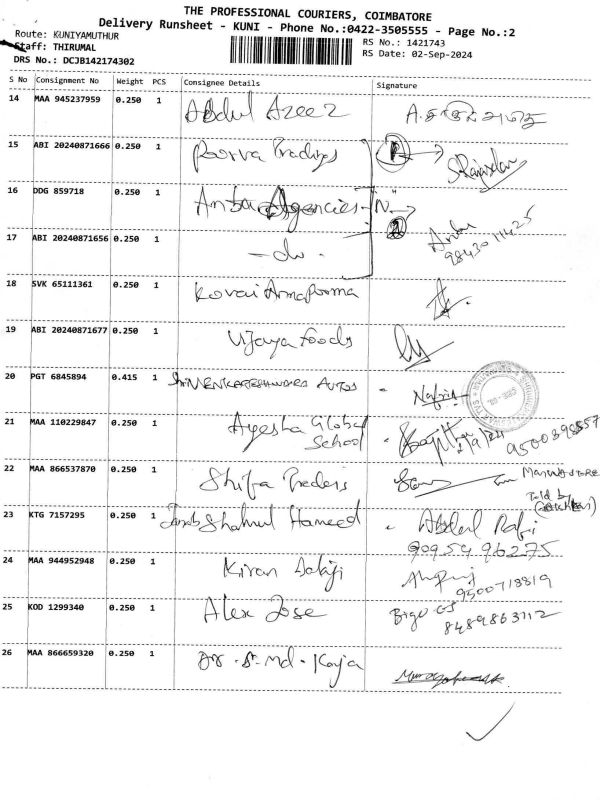 THE PROFESSIONAL COURIERS, COIMBATORE
Delivery Runsheet - KUNI - Phone No.:0422-3505555 - Page No.:2
Route: KUNIYAMUTHUR
RS No.: 1421743
Staff: THIRUMAL
RS Date: 02-Sep-2024
DRS No.: DCJB142174302
S No Consignment No Weight PCS Consignee Details Signature
14 MAA 945237959 0.250 1 Abdul Azeez
15 ABI 20240871666 0.250 1 Poorva Tradings
16 DDG 859718 0.250 1 Anbu Agencies
Anbu
9843011425
17 ABI 20240871656 0.250 1 -do-
18 SVK 65111361 0.250 1 Kovai Annapoorna
19 ABI 20240871677 0.250 1 Vijaya Foods
20 PGT 6845894 0.415 1 Shri VENKATESHWARA AUTOS
21 MAA 110229847 0.250 1 Ayesha Global
School 2/9/24
22 MAA 866537870 0.250 1 Shifa Traders
Told by
23 KTG 7157295 0.250 1 Janab Shahul Hameed - Abdul Rafi
9095496275
24 MAA 944952948 0.250 1 Kiran Balaji
9500718819
25 KOD 1299340 0.250 1 Alex Jose
8489863112
26 MAA 866659320 0.250 1 Dr. S. Md. Kaja